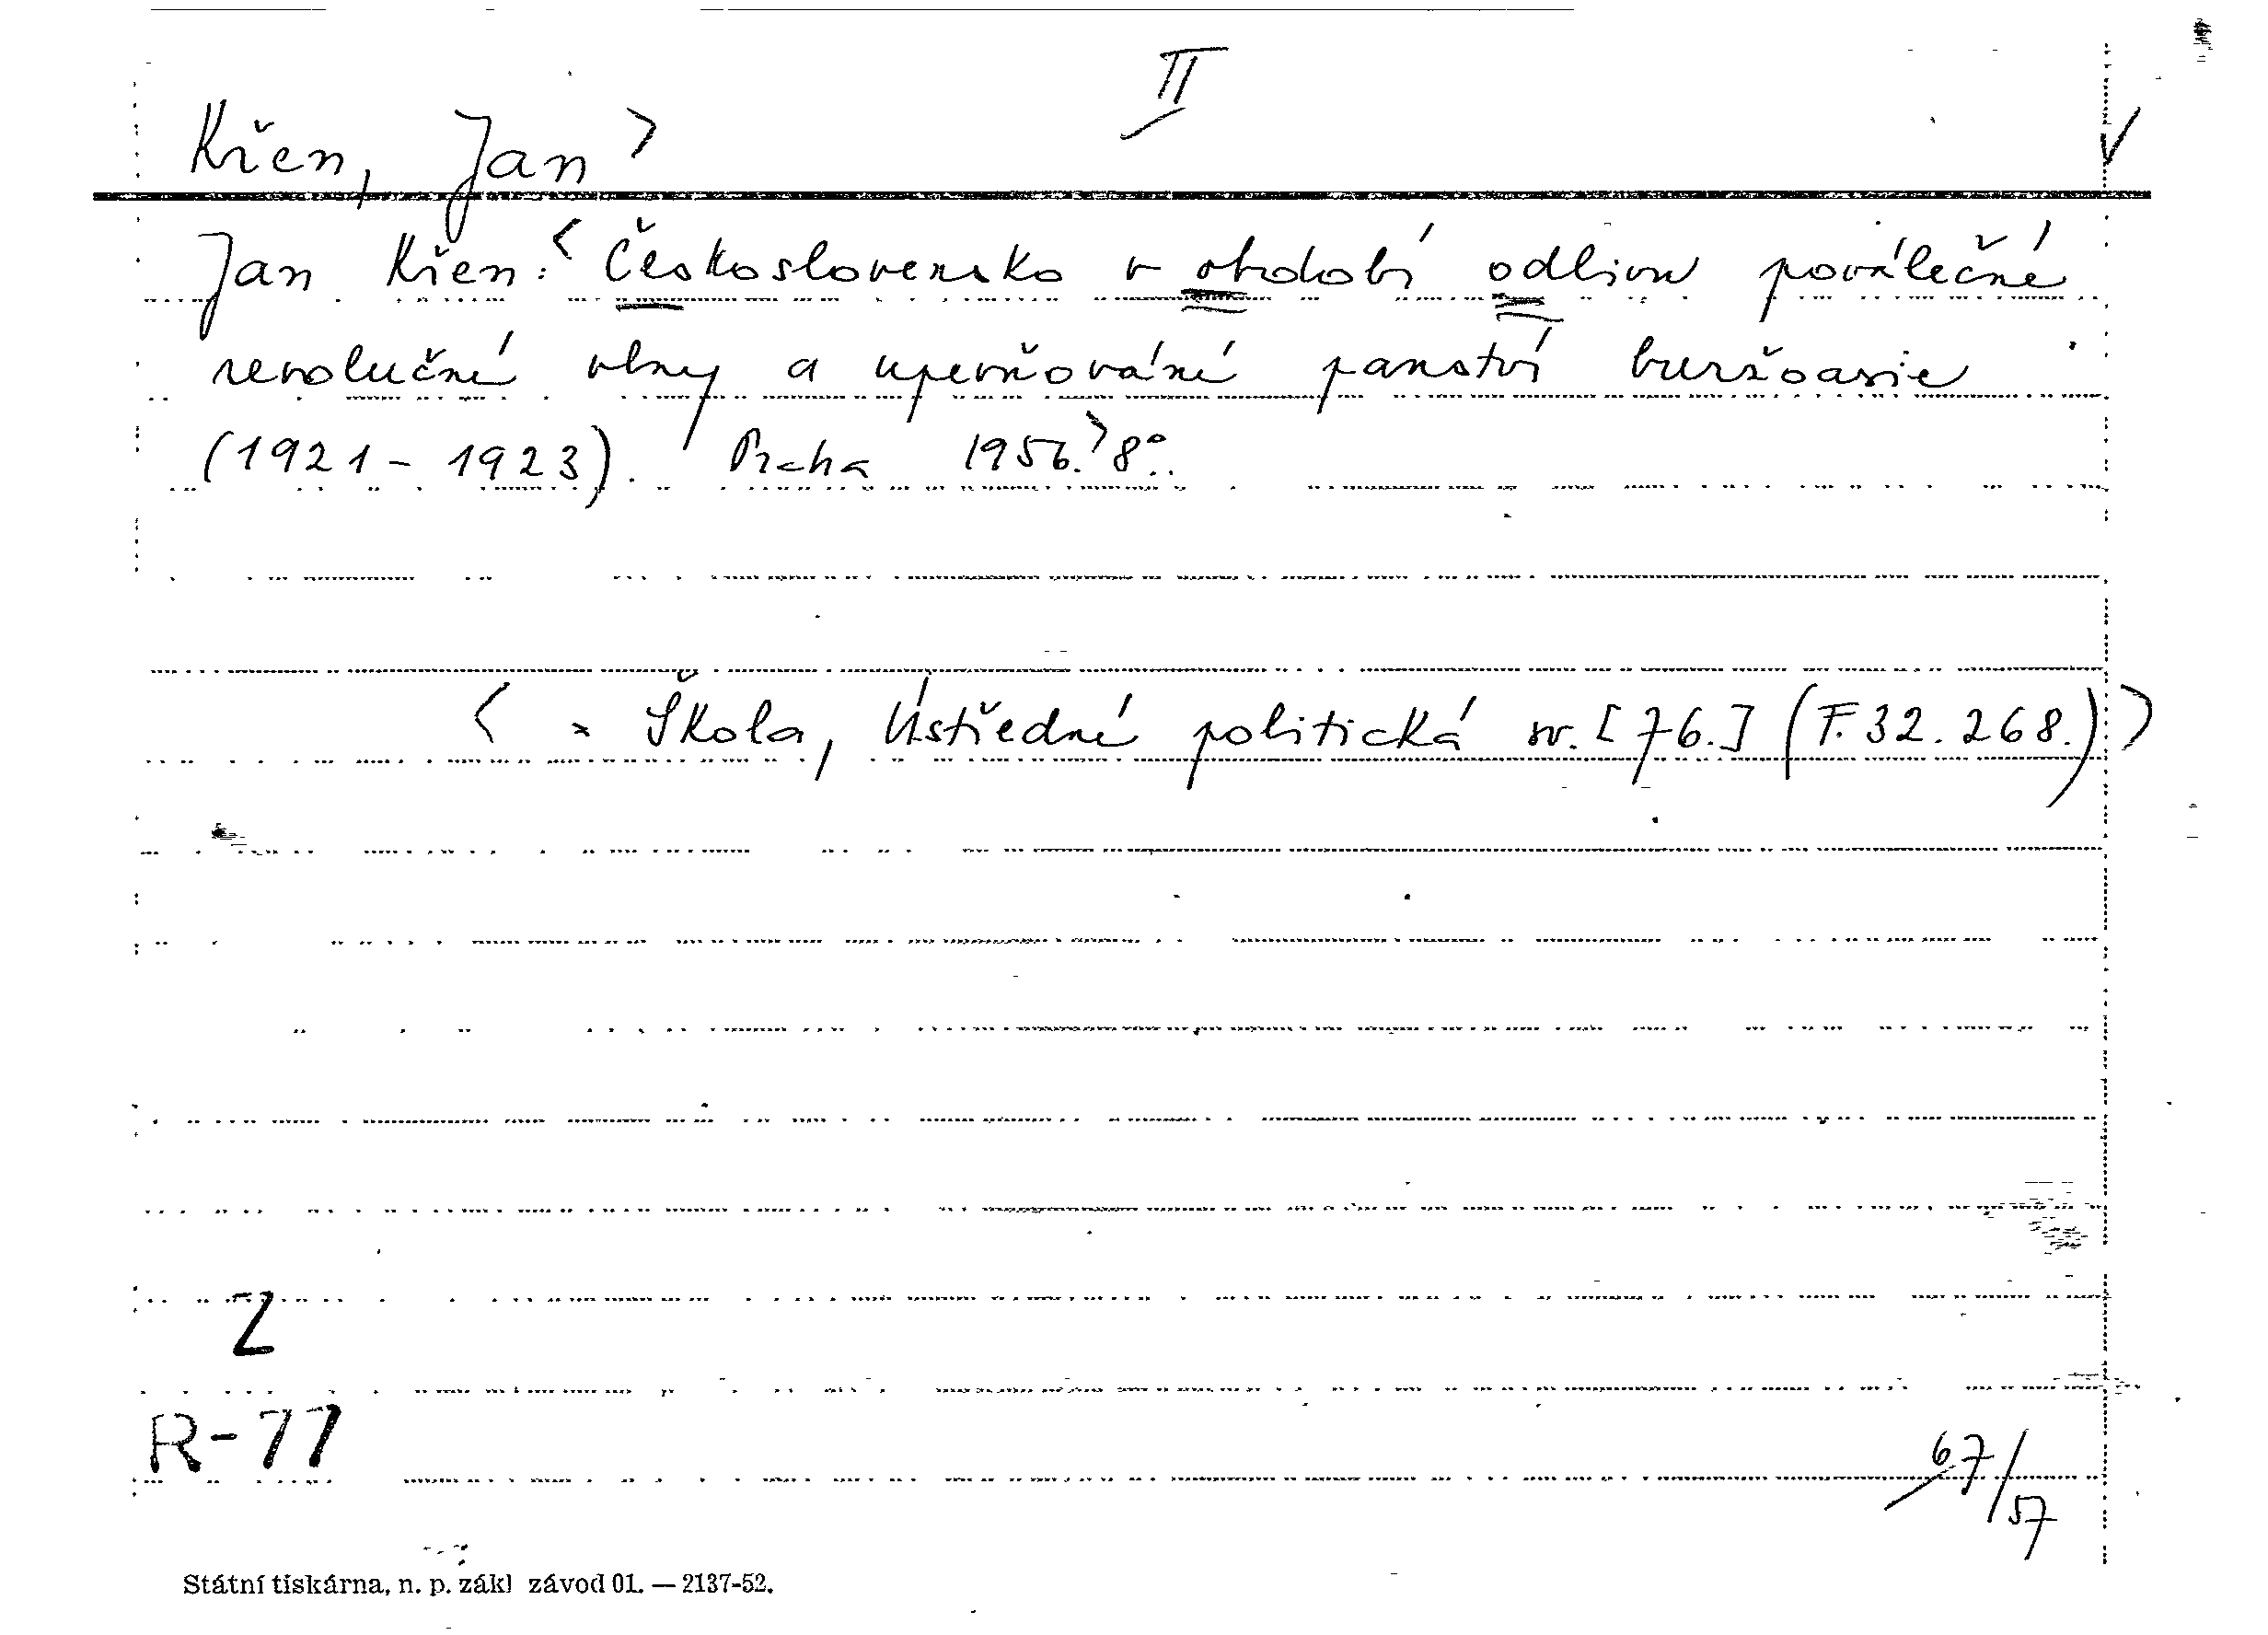 II
Křen, Jan >
Jan Křen: < Československo v období odlivu poválečné
revoluční vlny a upevňování panství buržoasie
(1921-1923). Praha 1956.> 8°.
< = Škola, Ústřední politická sv. [76.] (F.32.268.) >
Z
R-77
67/57
Státní tiskárna, n. p. zákl závod 01. — 2137-52.